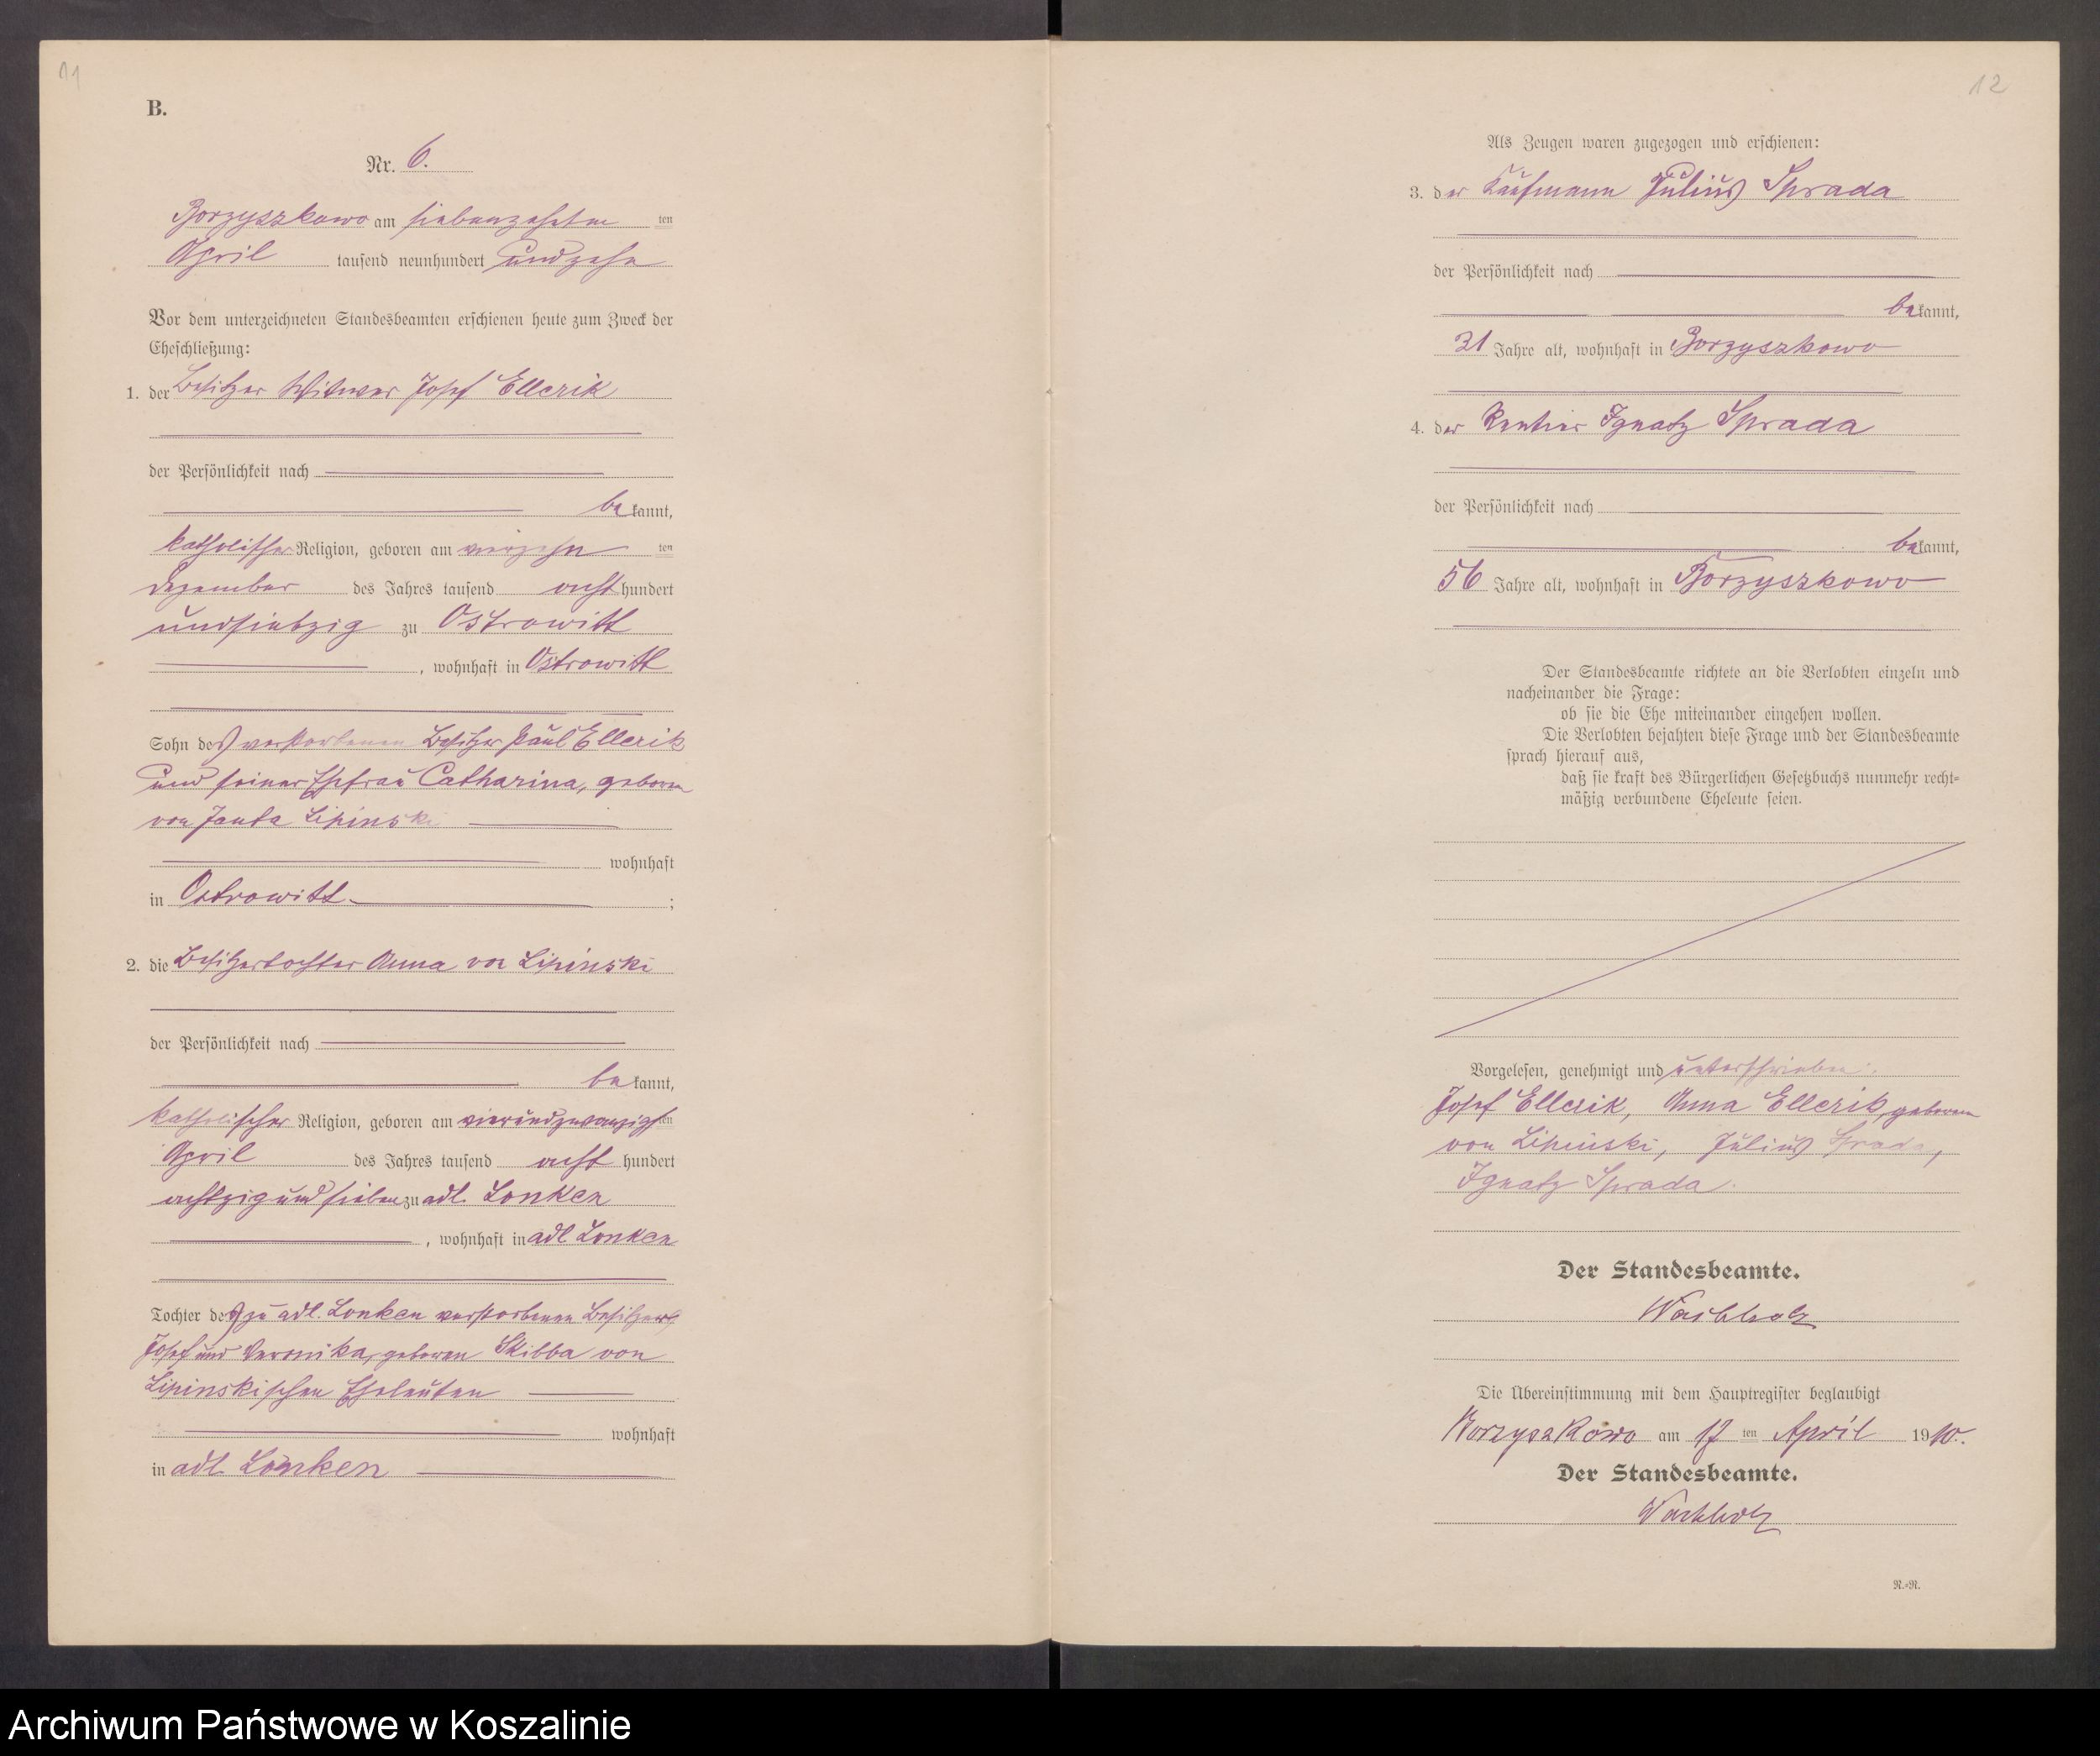 11
B.
Nr. 6.
Borzyszkowo am siebenzehnten ten
April tausend neunhundert und zehn
Vor dem unterzeichneten Standesbeamten erschienen heute zum Zweck der
Eheschließung:
1. der Besitzer Witwer Josef Ellerik
der Persönlichkeit nach
be kannt,
katholischer Religion, geboren am vierzehn ten
Dezember des Jahres tausend acht hundert
undsiebzig zu Ostrowitt
, wohnhaft in Ostrowitt
Sohn des verstorbenen Besitzer Paul Ellerik
und seiner Ehefrau Catharina, geboren
von Janta Lipinski
wohnhaft
in Ostrowitt
;
2. die Besitzertochter Anna von Lipinski
der Persönlichkeit nach
be kannt,
katholischer Religion, geboren am vierundzwanzigsten
April des Jahres tausend acht hundert
achtzig und sieben zu adl. Lonken
, wohnhaft in adl Lonken
Tochter des zu adl. Lonken verstorbenen Besitzers
Josef und Veronika, geboren Skibba von
Lipinskischen Eheleuten
wohnhaft
in adl. Lonken
12
Als Zeugen waren zugezogen und erschienen:
3. der Kaufmann Julius Sprada
der Persönlichkeit nach
bekannt,
31 Jahre alt, wohnhaft in Borzyszkowo
4. der Rentier Ignatz Sprada
der Persönlichkeit nach
bekannt,
56 Jahre alt, wohnhaft in Borzyszkowo
Der Standesbeamte richtete an die Verlobten einzeln und
nacheinander die Frage:
ob sie die Ehe miteinander eingehen wollen.
Die Verlobten bejahten diese Frage und der Standesbeamte
sprach hierauf aus,
daß sie kraft des Bürgerlichen Gesetzbuchs nunmehr recht-
mäßig verbundene Eheleute seien.
Vorgelesen, genehmigt und unterschrieben:
Josef Ellerik, Anna Ellerik, geboren
von Lipinski, Julius Sprada,
Ignatz Sprada.
Der Standesbeamte.
Wachholz
Die Übereinstimmung mit dem Hauptregister beglaubigt
Borzyszkowo am 17 ten April 1910.
Der Standesbeamte.
Wachholz
N.-N.
Archiwum Państwowe w Koszalinie